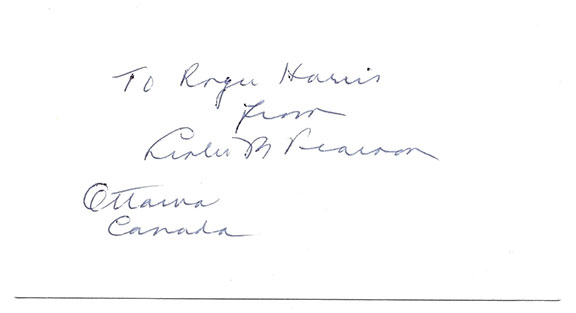 To Roger Harris
from
Lester B Pearson
Ottawa
Canada